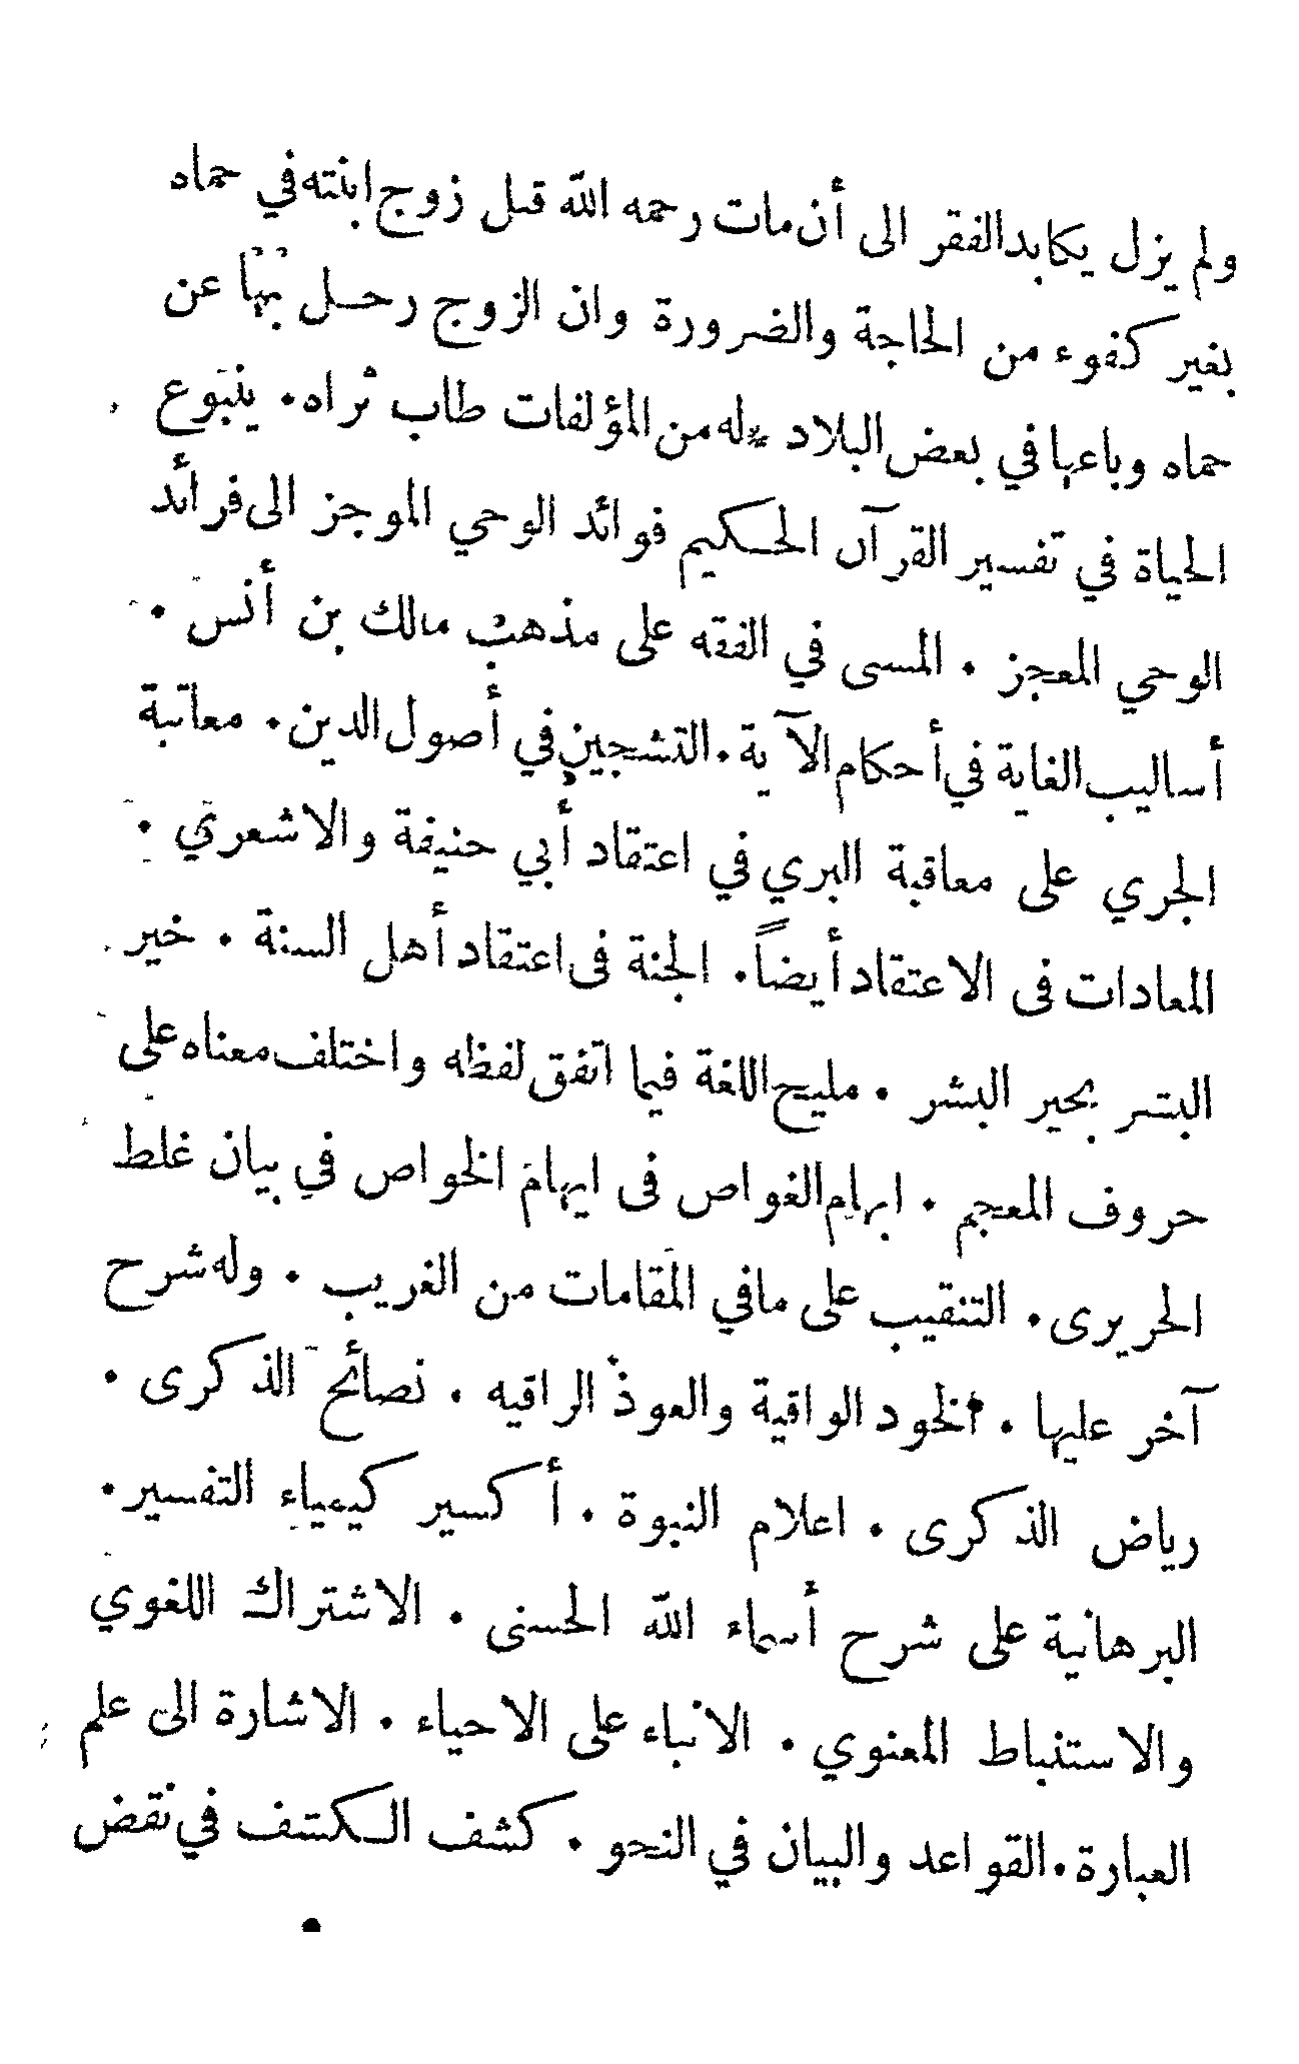 ولم يزل يكابد الفقر الى أن مات رحمه الله قيل زوج ابنته في حماه
بغير كفوء من الحاجة والضرورة وان الزوج رحل بها عن
حماه وباعها في بعض البلاد * له من المؤلفات طاب ثراه . ينبوع
الحياة في تفسير القرآن الحكيم فوائد الوحي الموجز الى فرائد
الوحي المعجز . المسى في الفقه على مذهب مالك بن أنس .
أساليب الغاية في أحكام الآية . التشجين في أصول الدين . معاتبة
الجري على معاقبة البري في اعتقاد أبي حنيفة والاشعري .
المعادات فى الاعتقاد أيضاً . الجنة فى اعتقاد أهل السنة . خير
البشر بخير البشر . مليح اللغة فيما اتفق لفظه واختلف معناه على
حروف المعجم . ابهام الغواص فى ايهام الخواص في بيان غلط
الحريرى . التنقيب على مافي المقامات من الغريب . وله شرح
آخر عليها . الخود الواقية والعوذ الراقيه . نصائح الذكرى .
رياض الذكرى . اعلام النبوة . أكسير كيمياء التفسير .
البرهانية على شرح أسماء الله الحسنى . الاشتراك اللغوي
والاستنباط المعنوي . الانباء على الاحياء . الاشارة الى علم
العبارة . القواعد والبيان في النحو . كشف الكشف في نقض